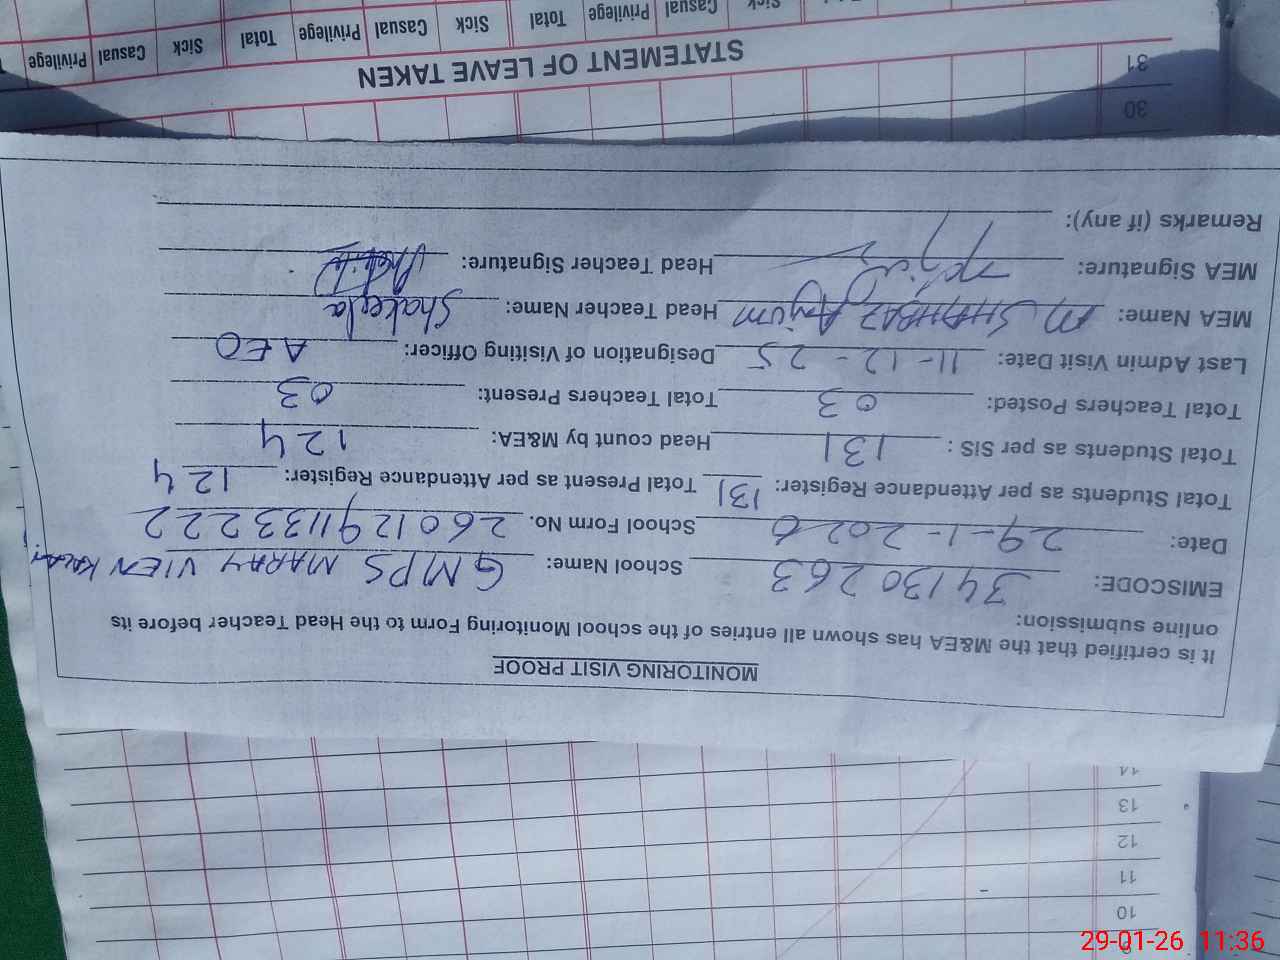 MONITORING VISIT PROOF
It is certified that the M&EA has shown all entries of the school Monitoring Form to the Head Teacher before its
online submission:
EMISCODE: 34130263 School Name: GMPS MARAY VIEN KALAN
Date: 29-1-2026 School Form No. 260129113322 2
Total Students as per Attendance Register: 131 Total Present as per Attendance Register: 124
Total Students as per SIS : 131 Head count by M&EA: 124
Total Teachers Posted: 03 Total Teachers Present: 03
Last Admin Visit Date: 11-12-25 Designation of Visiting Officer: AEO
MEA Name: M SHAHBAZ Anjum Head Teacher Name: Shakeela
MEA Signature: Head Teacher Signature:
Remarks (if any):
30
31
STATEMENT OF LEAVE TAKEN
Privilege Casual Sick Total Privilege Casual Sick Total Privilege Casual Sick
10
11
12
13
14
29-01-26 11:36